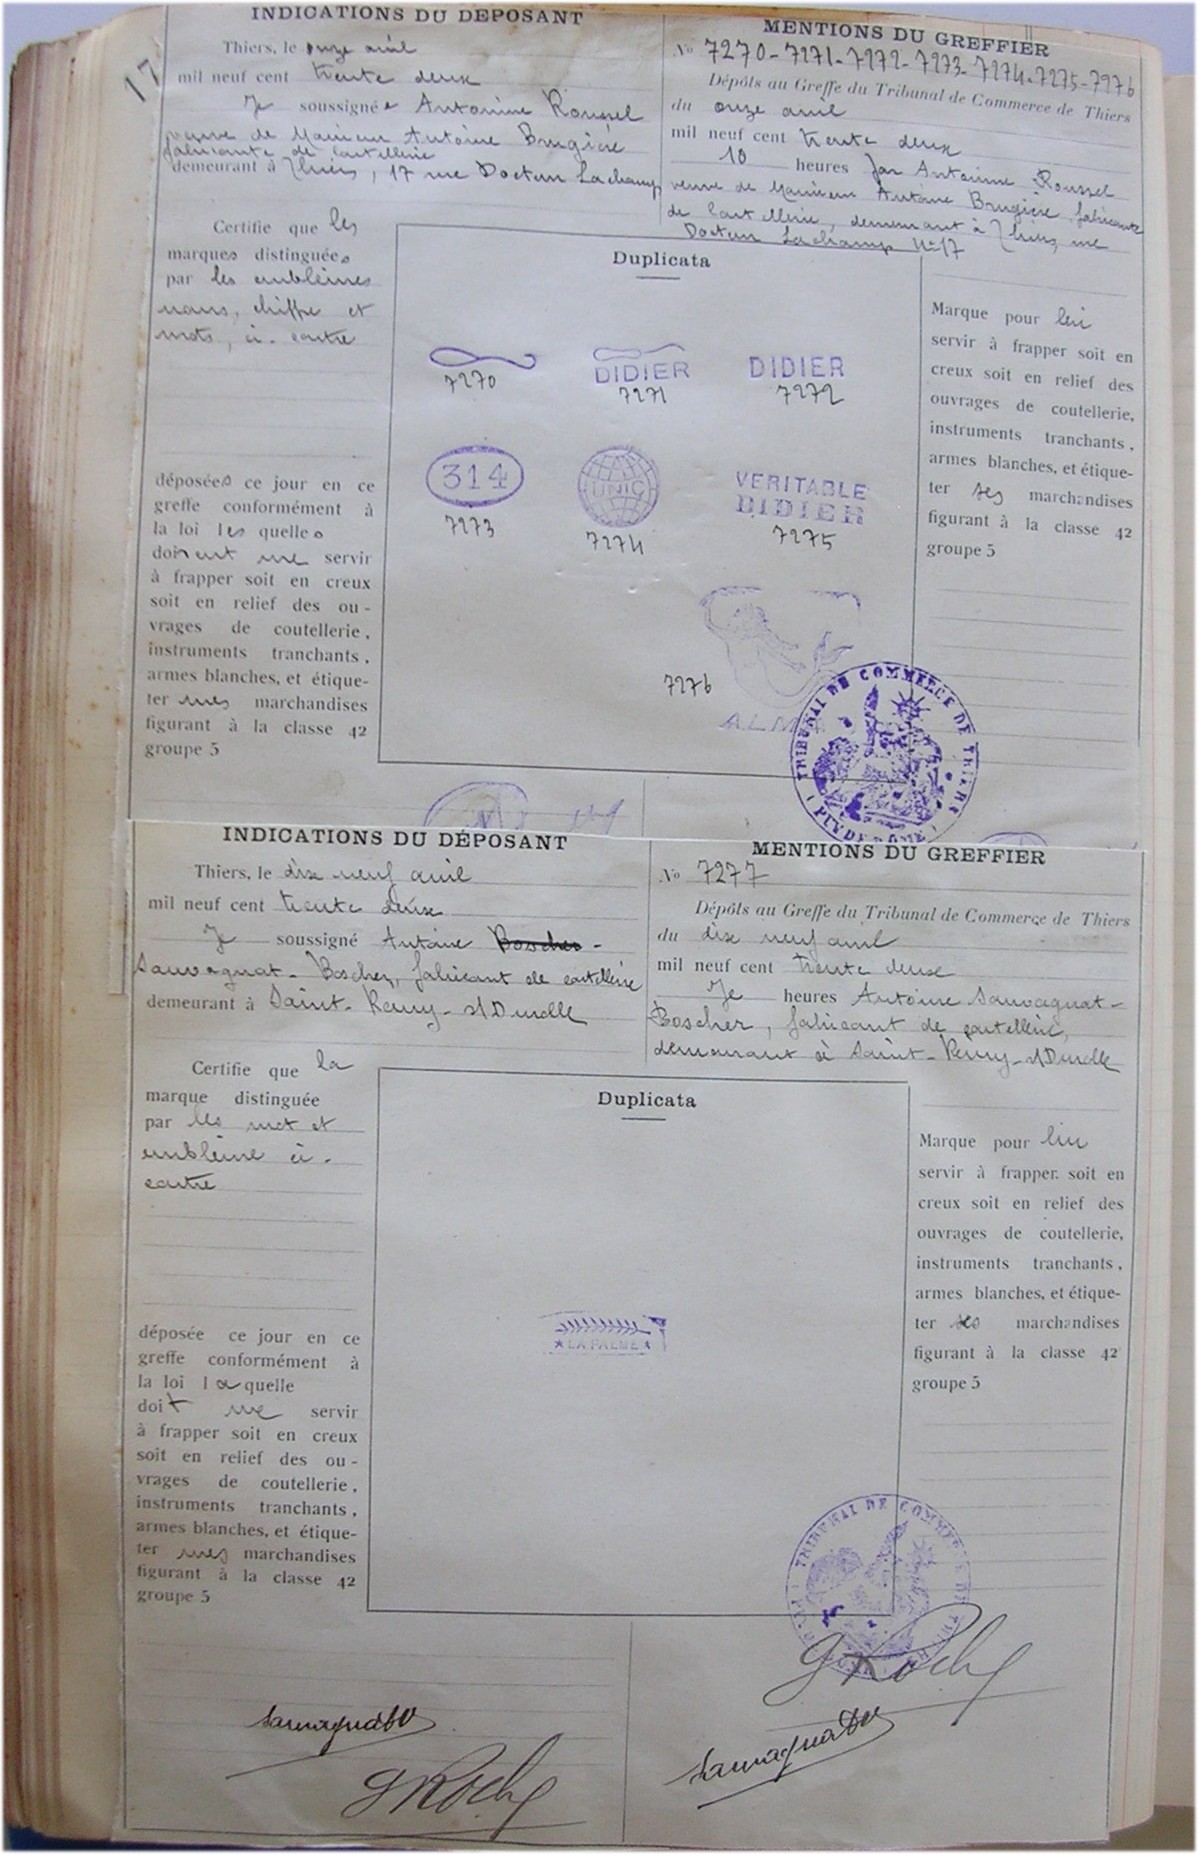 17
INDICATIONS DU DÉPOSANT
Thiers, le onze avril
mil neuf cent trente deux
Je soussignée Antonine Roussel
veuve de Monsieur Antoine Brugière
fabricante de coutellerie
demeurant à Thiers, 17 rue Docteur Lachamp
MENTIONS DU GREFFIER
No 7270-7271-7272-7273-7274-7275-7276
Dépôts au Greffe du Tribunal de Commerce de Thiers
du onze avril
mil neuf cent trente deux
10 heures par Antonine Roussel
veuve de Monsieur Antoine Brugière, fabricante
de coutellerie, demeurant à Thiers, rue
Docteur Lachamp No 17
Certifie que les
marques distinguées
par les emblèmes
noms, chiffre et
mots, ci-contre
déposées ce jour en ce
greffe conformément à
la loi lesquelles
doivent me servir
à frapper soit en creux
soit en relief des ou-
vrages de coutellerie,
instruments tranchants,
armes blanches, et étique-
ter mes marchandises
figurant à la classe 42
groupe 5
Duplicata
7270
DIDIER
7271
DIDIER
7272
314
7273
UNIC
7274
VERITABLE
DIDIER
7275
7276
ALMA
TRIBUNAL DE COMMERCE DE THIERS
PUY DE DOME
Marque pour lui
servir à frapper soit en
creux soit en relief des
ouvrages de coutellerie,
instruments tranchants,
armes blanches, et étique-
ter ses marchandises
figurant à la classe 42
groupe 5
INDICATIONS DU DÉPOSANT
Thiers, le dix neuf avril
mil neuf cent trente deux
Je soussigné Antoine Boscher-
Sauvagnat-Boscher, fabricant de coutellerie
demeurant à Saint-Remy-s/Durolle
MENTIONS DU GREFFIER
No 7277
Dépôts au Greffe du Tribunal de Commerce de Thiers
du dix neuf avril
mil neuf cent trente deux
Je heures Antoine Sauvagnat-
Boscher, fabricant de coutellerie,
demeurant à Saint-Remy-s/Durolle
Certifie que la
marque distinguée
par les mot et
emblème ci-
contre
déposée ce jour en ce
greffe conformément à
la loi laquelle
doit me servir
à frapper soit en creux
soit en relief des ou-
vrages de coutellerie,
instruments tranchants,
armes blanches, et étique-
ter mes marchandises
figurant à la classe 42
groupe 5
Duplicata
LA PALME
Marque pour lui
servir à frapper soit en
creux soit en relief des
ouvrages de coutellerie,
instruments tranchants,
armes blanches, et étique-
ter ses marchandises
figurant à la classe 42
groupe 5
TRIBUNAL DE COMMERCE DE
GRoche